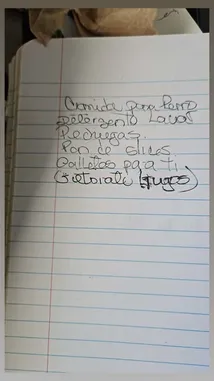 Comida para Perro
Detergente Lavar
Pechugas.
Pan de slices
Galletas para ti
(Gatorate Jugos)